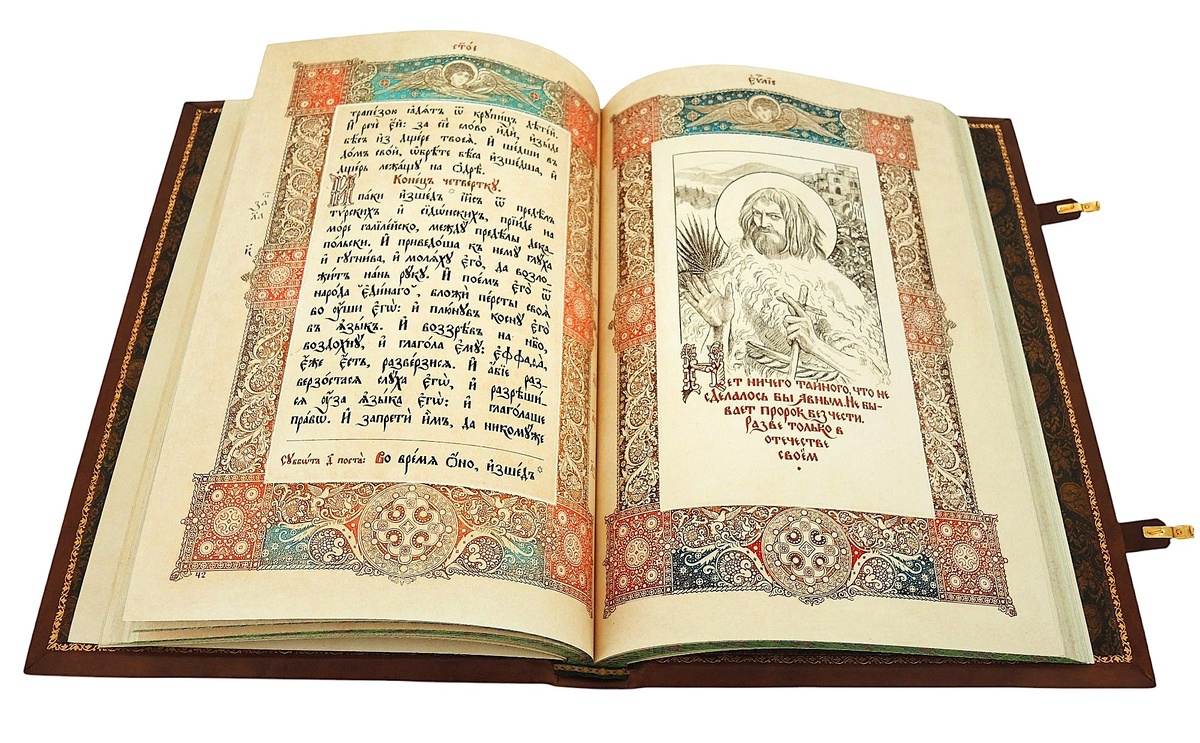 ст҃ое
трапезѹ ꙗдѧтъ ѿ крѹпицъ дѣтей.
И҆ речѐ е҆́й: за сїѐ сло́во и҆дѝ, и҆зы́де
бѣ́съ и҆з̾ дще́ре твоеѧ̀. И҆ ше́дши въ
до́мъ сво́й, ѡ҆брѣ́те бѣ́са и҆зше́дша, и҆
дще́рь лежа́щꙋ на ѻ҆дрѣ̀.
Коне́цъ четверткꙋ̀.
И҆ па́ки и҆зше́дъ і҆и҃съ ѿ предѣ̑лъ
тѵ́рскихъ и҆ сїдѡ́нскихъ, прїи́де на
мо́ре галїле́йско, междꙋ̀ предѣ̑лы дека-
по́льски. И҆ приведо́ша къ немꙋ̀ глꙋ́ха
и҆ гꙋгни́ва, и҆ молѧ́хꙋ є҆го̀, да возло-
жи́тъ на́нь рꙋ́кꙋ. И҆ пое́мъ є҆го̀ ѿ
наро́да є҆ди́наго, вложѝ пе́рсты своѧ̑
во ᲂу҆́ши є҆гѡ̀: и҆ плю́нꙋвъ коснꙋ̀ є҆го̀
въ ѧ҆зы́къ. И҆ воззрѣ́въ на н҃бо,
воздохнꙋ̀, и҆ глаго́ла є҆мꙋ̀: є҆ффаѳа̀,
є҆́же є҆́сть, разве́рзисѧ. И҆ а҆́бїе раз-
верзо́стасѧ слꙋ́ха є҆гѡ̀, и҆ разрѣши́-
сѧ ᲂу҆́за ѧ҆зы́ка є҆гѡ̀: и҆ глаго́лаше
пра́вѡ. И҆ запретѝ и҆̀мъ, да никомꙋ́же
Сꙋббѡ́та д҃ поста̀: Во вре́мѧ ѻ҆́но, и҆зше́дъ
42
є҆ѵⷢ҇лїе
Нет ничего тайного, что не
сделалось бы явным. Не бы-
вает пророк без чести.
Разве только в
отечестве
своем